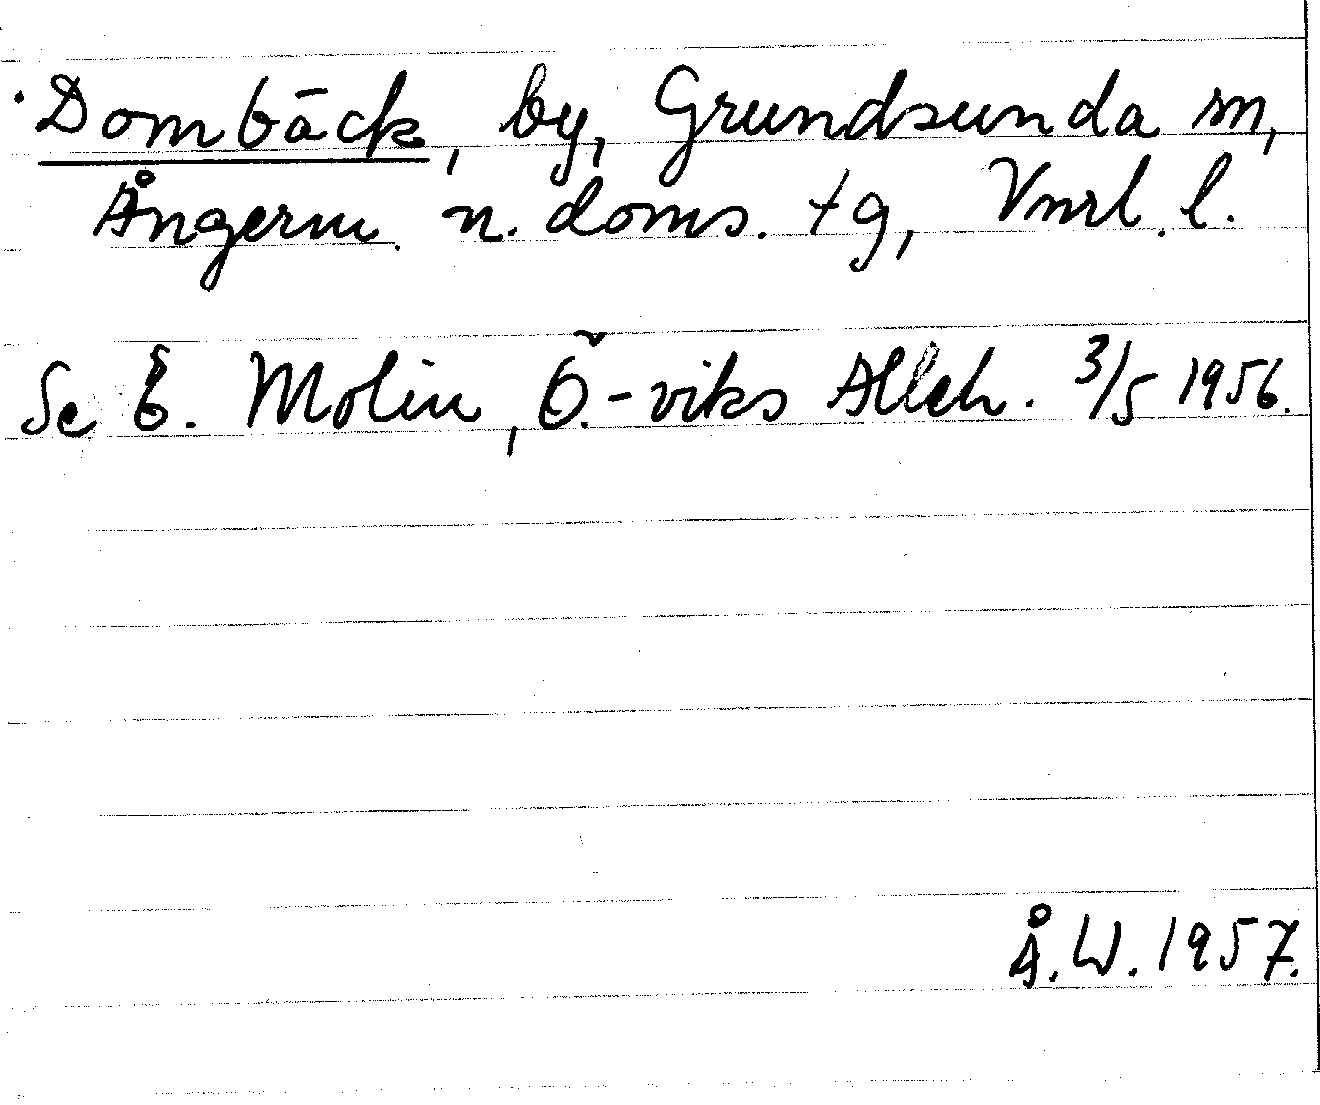 Dombäck, by, Grundsunda sn,
Ångerm. n. doms. tg, Vnrl. l.
Se E. Molin, Ö-viks Alleh. 3/5 1956.
Å.W. 1957.